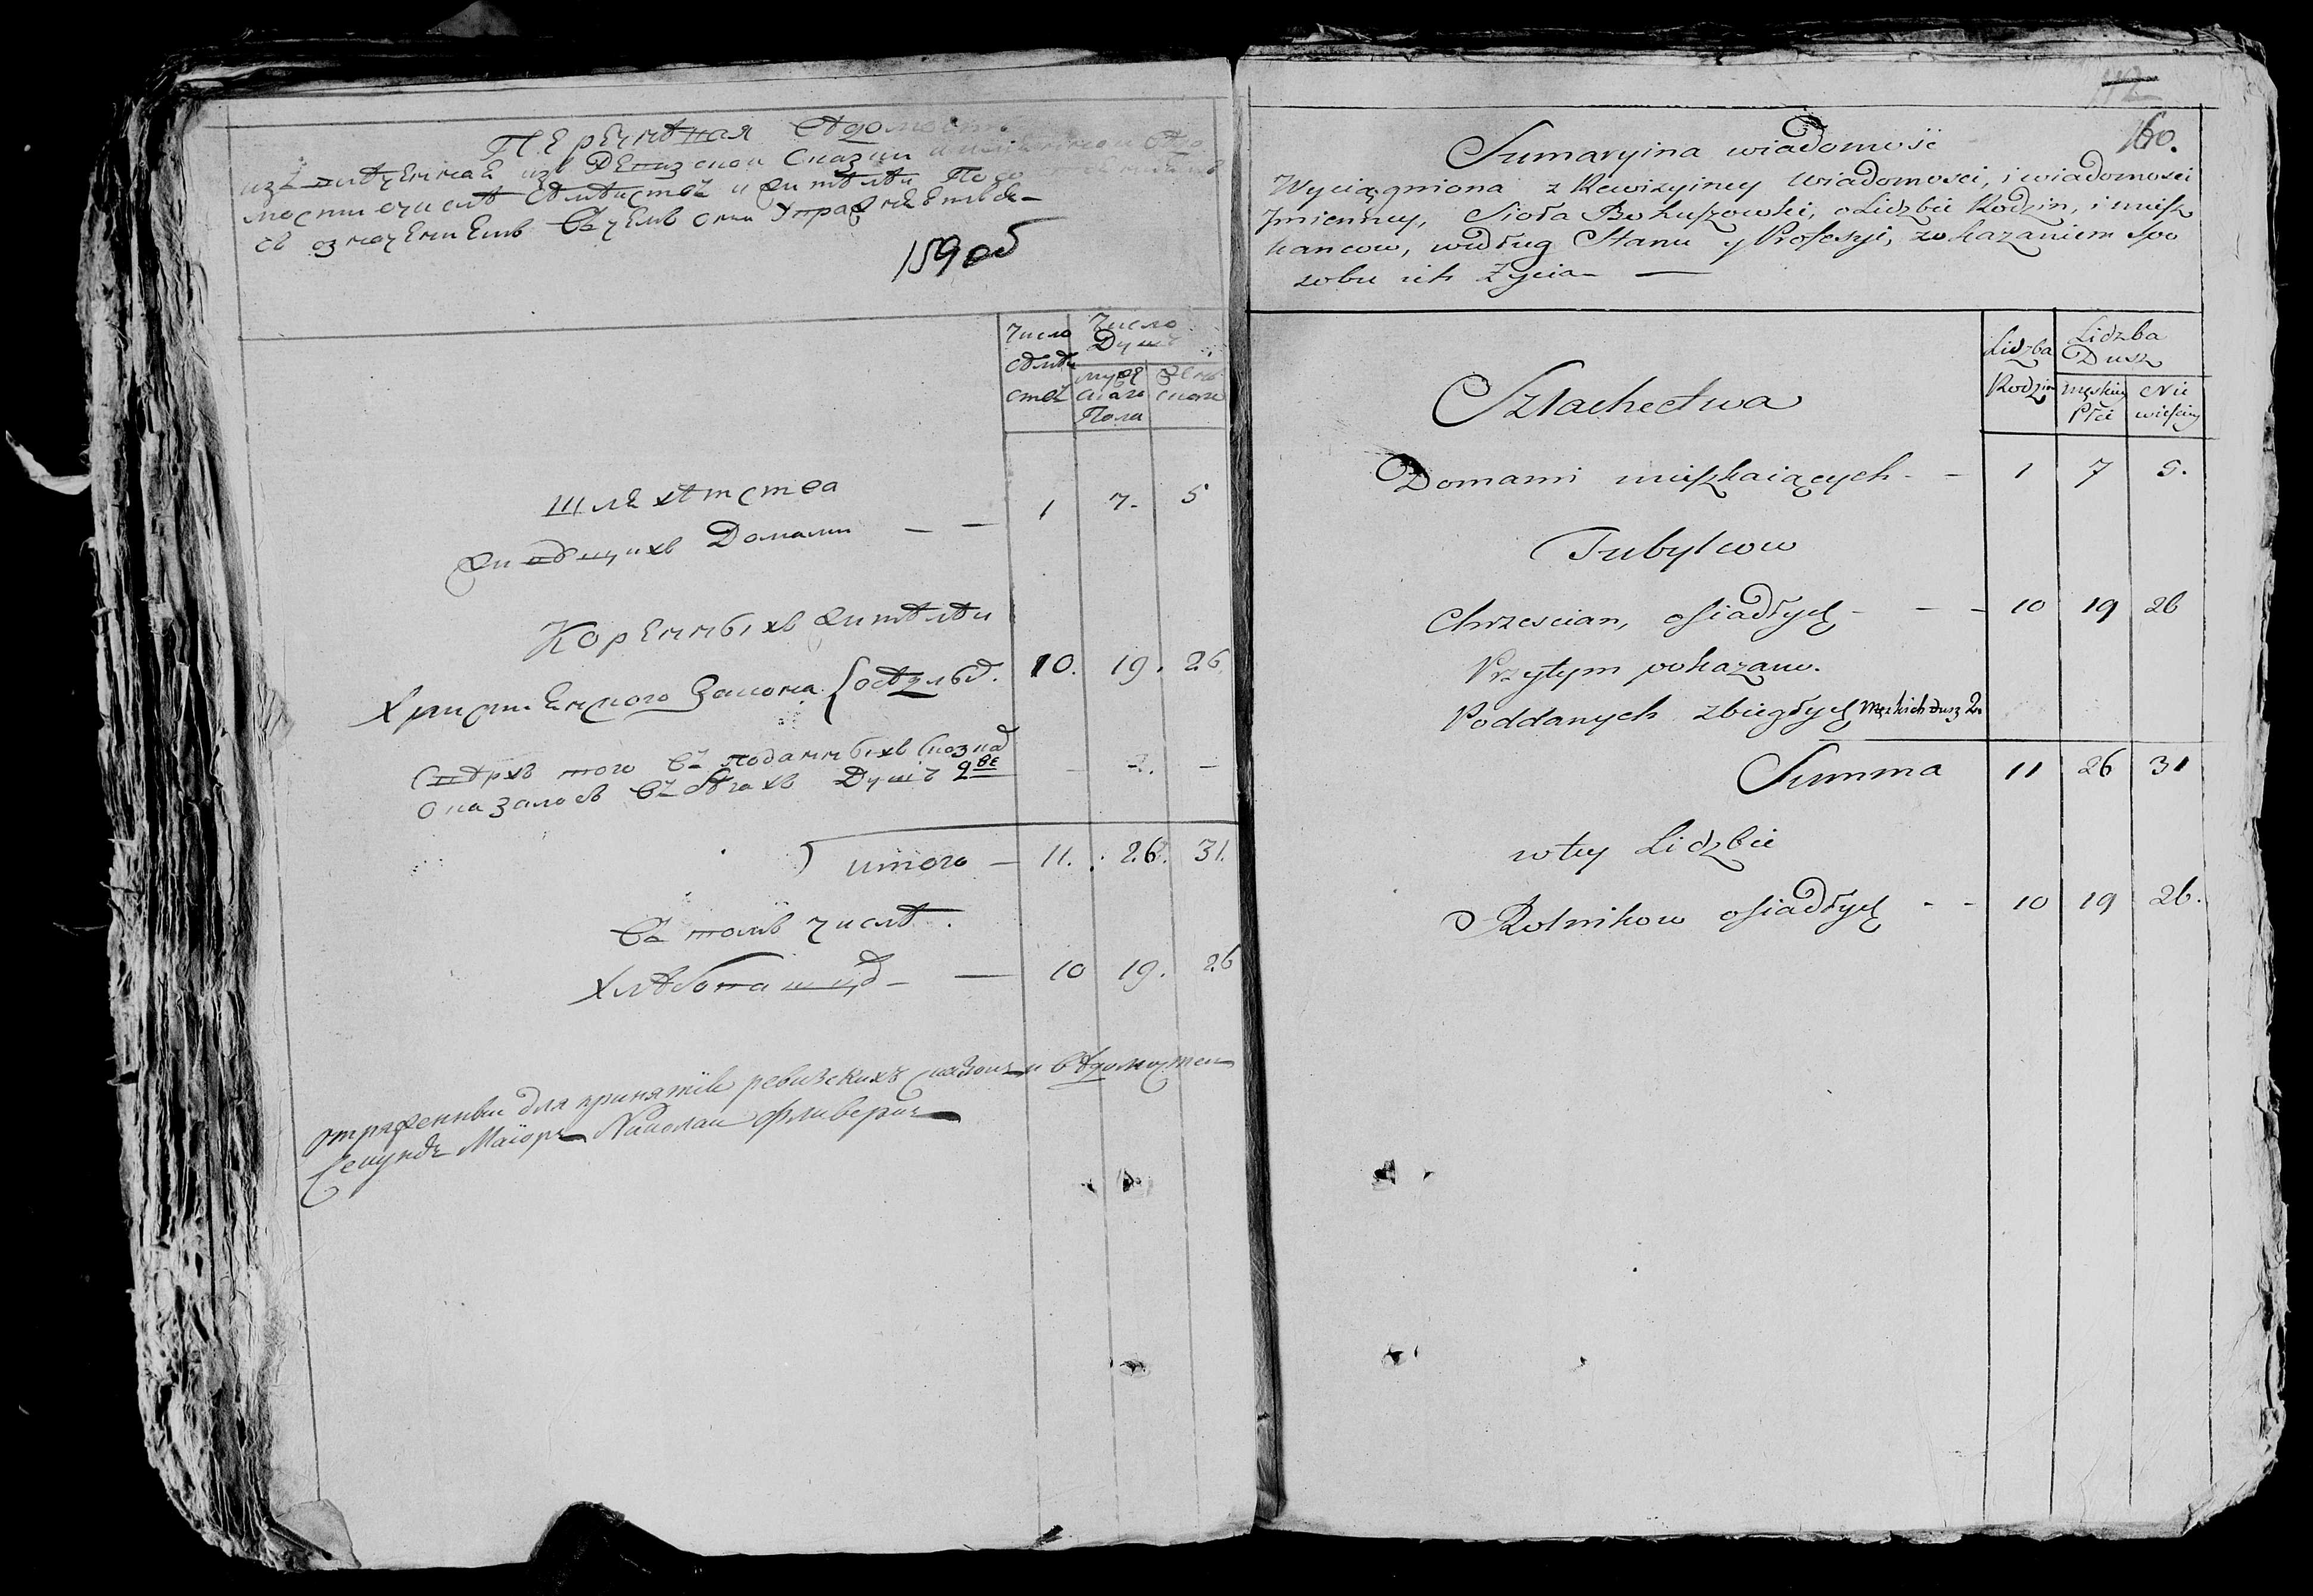 Перечневая Ведомость
извлеченная изъ Ревизской Сказки и имянной Ведо
мости о числе Семействъ и жителей По со
съ означениемъ въ чемъ они упражняются
159 об
Число Семействъ
Число Душъ
мужескаго Пола
женскаго
Шляхетства
живущихъ Домами — — 1 7. 5
Коренныхъ жителей
Христианского Закона 10. 19. 26.
Сверхъ того въ подданныхъ
оказалось въ бегахъ Душъ 2ве — 2. —
итого — 11. 26. 31.
въ томъ числе
Хлебопашцо — — 10 19. 26
отряженный для принятие ревизскихъ сказокъ и ведомостей
Секундъ Маiоръ Николай
112
160.
Sumaryina wiadomość
Wyciągniona z Rewizyiney Wiadomosci, i wiadomosci
Jmienney, Sioła Bokuszowki, o Lidzbie Rodzin, i miesz
kancow, według Stanu y Profesyi, zokazaniem spo
sobu ich Zycia —
Lidzba Rodzin
Lidzba Dusz
męskiey Płci
Niewiesciey
Szlachectwa
Domami mieszkaiących - - 1 7 5.
Tubylcow
Chrzescian, osiadłych - - - 10 19 26
Przytym pokazano.
Poddanych zbiegłych Męzkich dusz 2.
Summa 11 26 31
w tey Lidzbie
Rolnikow osiadłych - - 10 19 26.